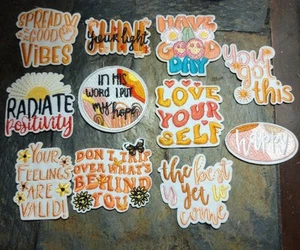 SPREAD
GOOD
VIBES
SHINE
your light
HAVE
A
GOOD
DAY
You
got
this
RADIATE
positivity
IN HIS
WORD I PUT
my hope
LOVE
YOUR
SELF
happy
YOUR
FEELINGS
ARE
VALID!
DON'T TRIP
OVER WHAT'S
BEHIND
YOU
the best
is yet
to
come